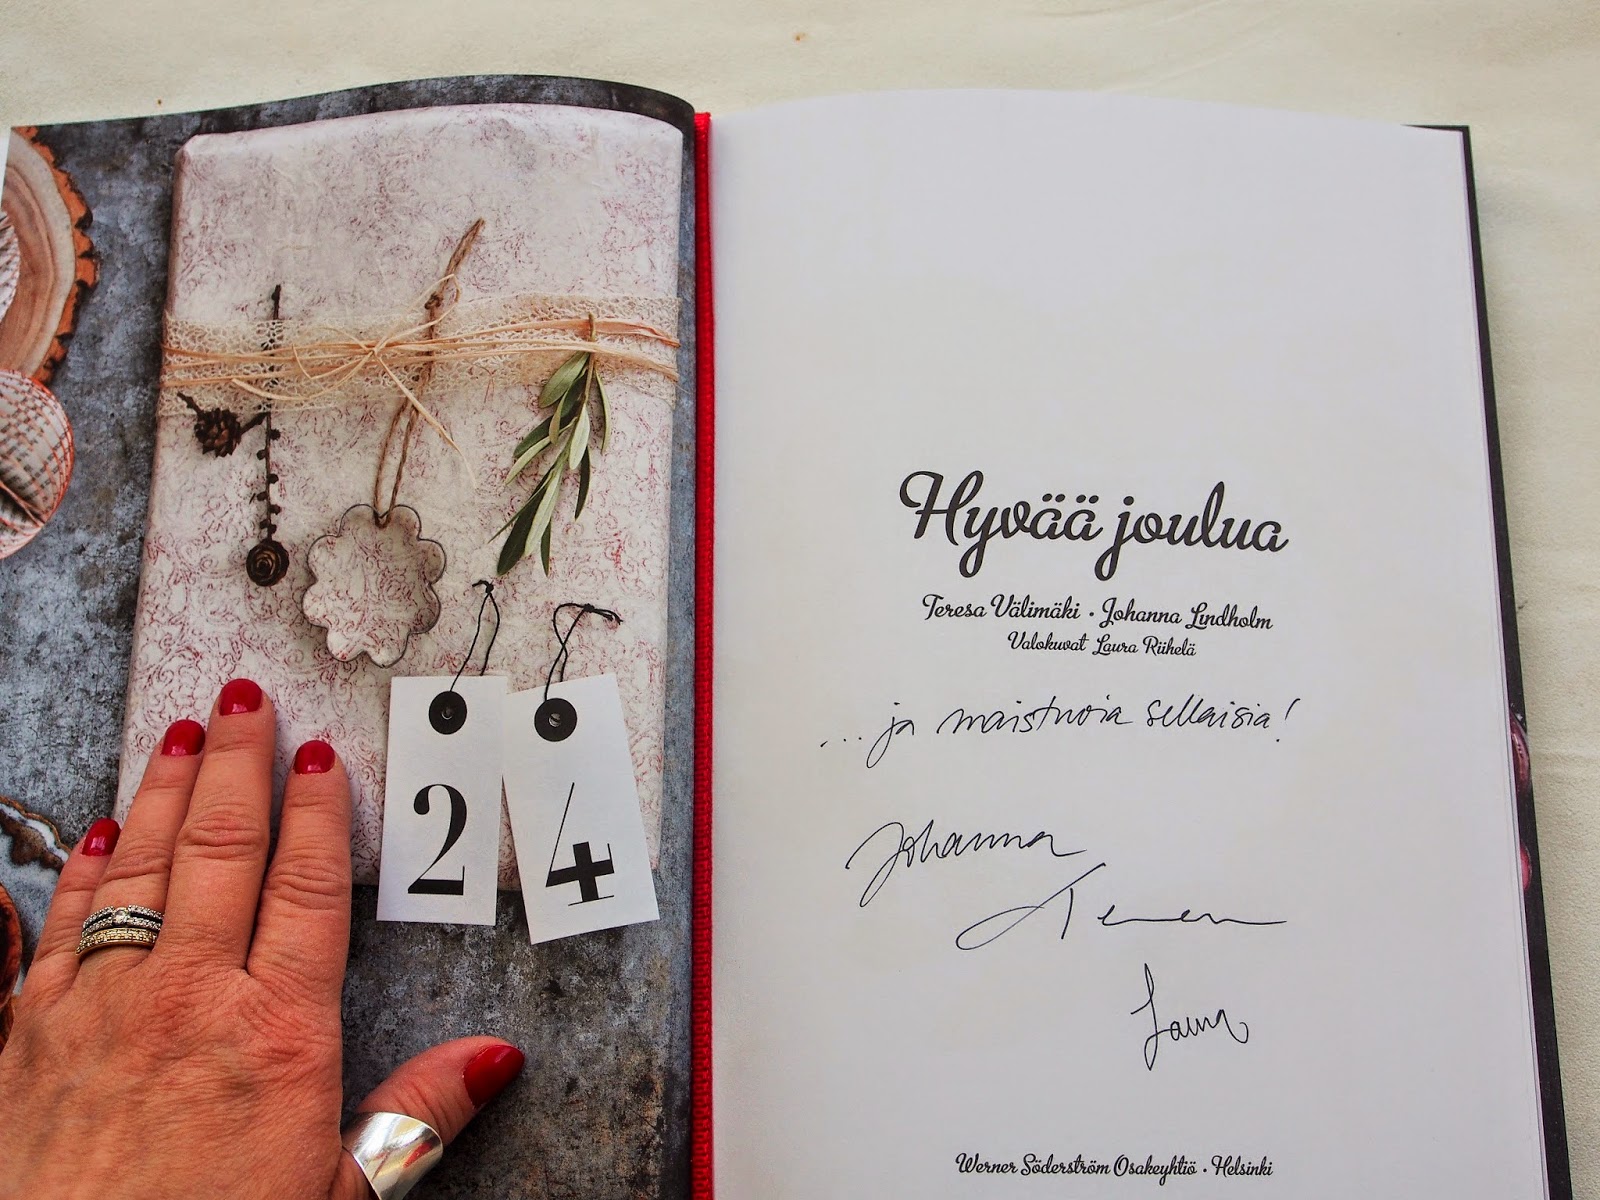 24
Hyvää joulua
Teresa Välimäki · Johanna Lindholm
Valokuvat Laura Riihelä
... ja maistuvia sellaisia!
Johanna
Teresa
Laura
Werner Söderström Osakeyhtiö · Helsinki